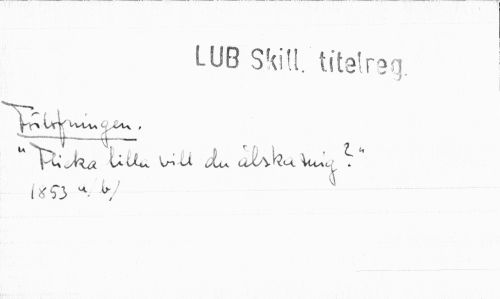 LUB Skill. titelreg.
Förlofningen.
"Flicka lilla vill du älska mig?"
1853 u/b/